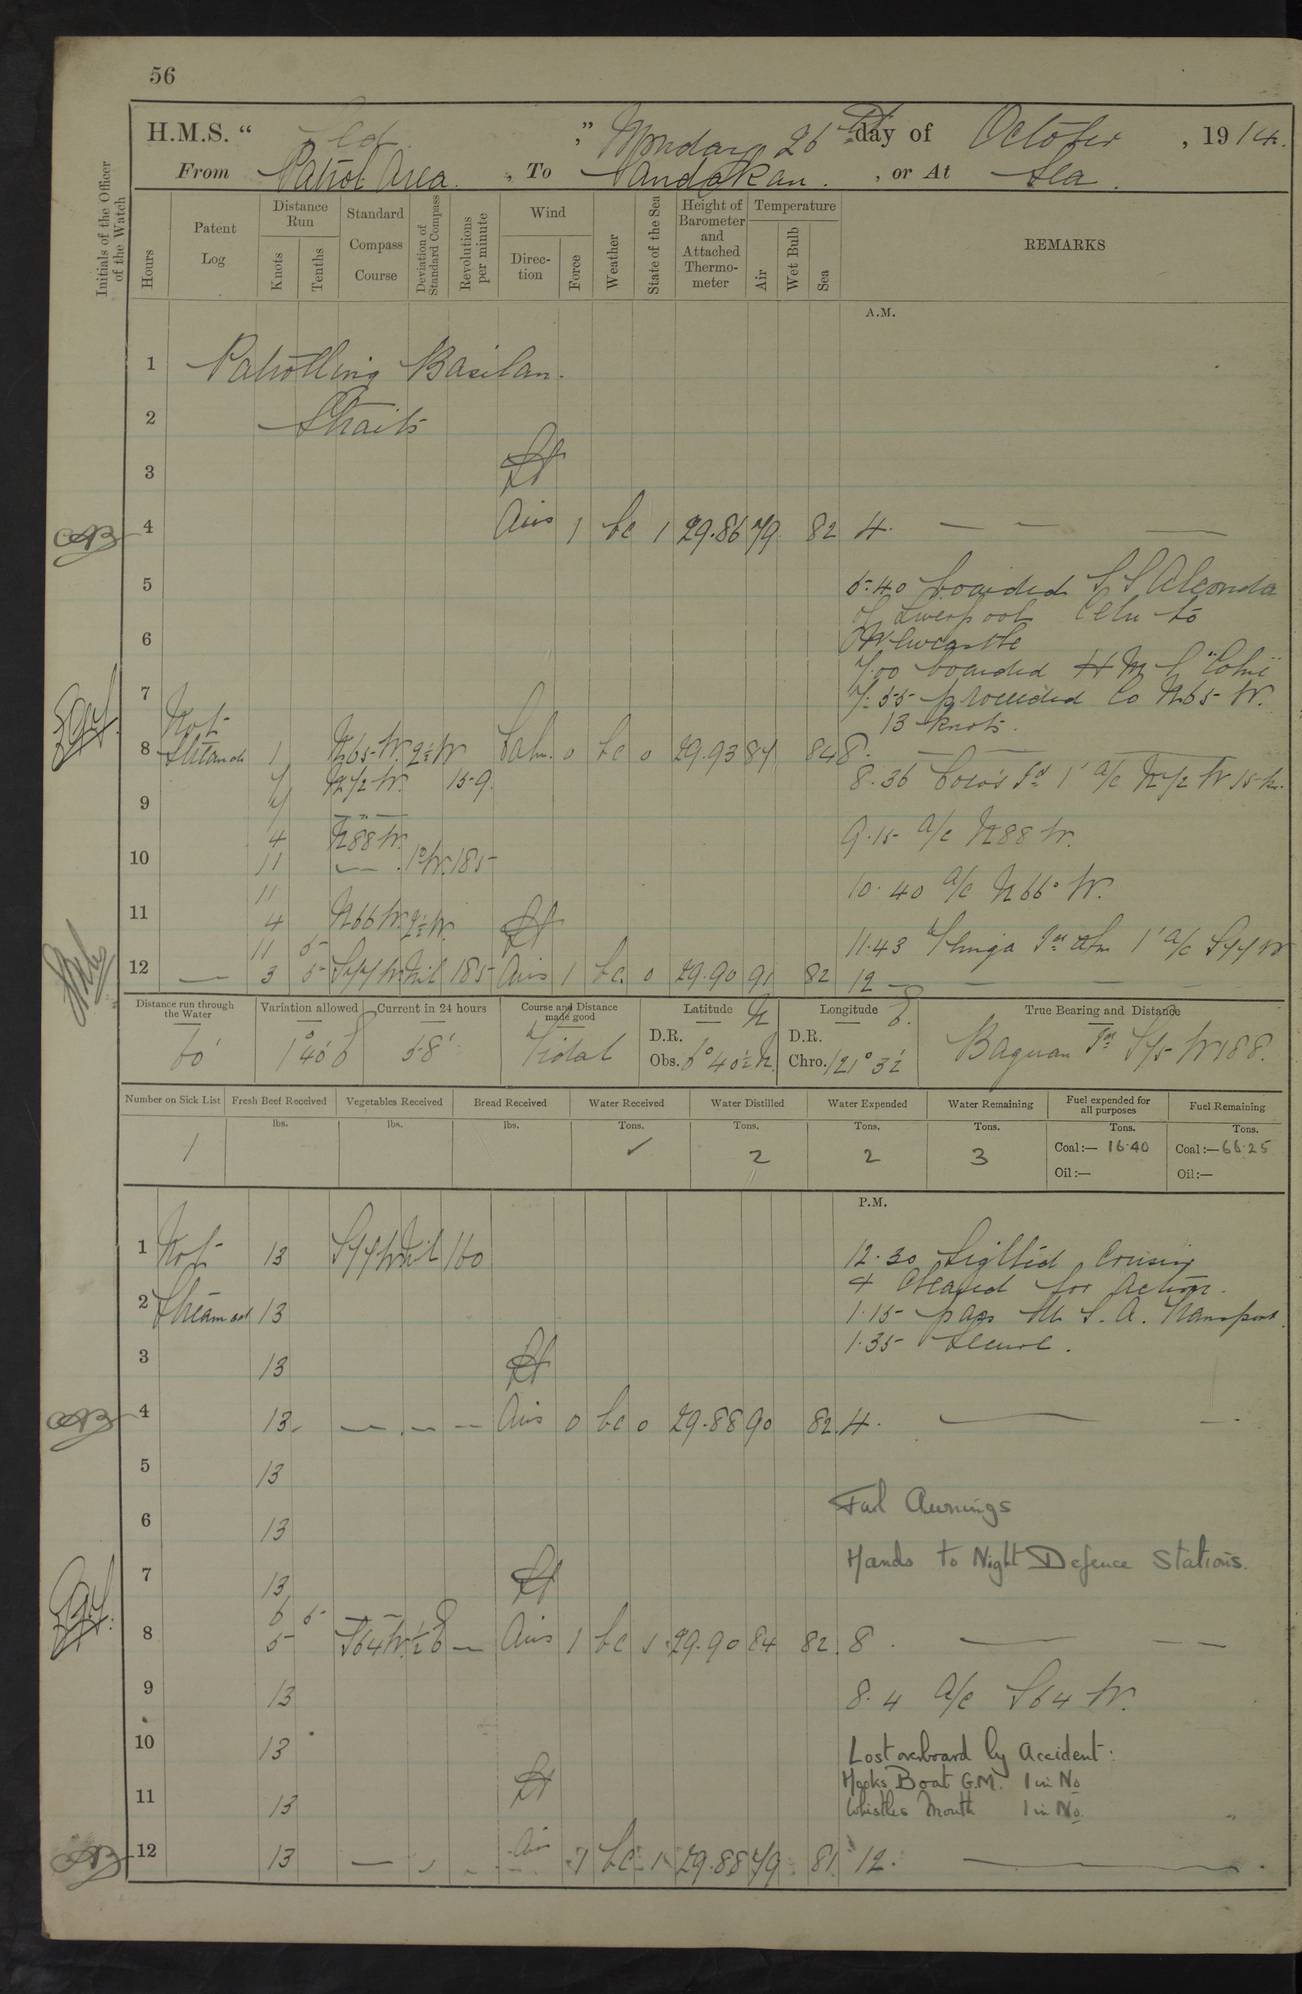 56
H.M.S. “ ” Monday 26th day of October , 1914.
From Patrol Area. , To Sandakan. , or At Sea.
Initials of the Officer of the Watch
Hours
Patent Log
Distance Run
Knots
Tenths
Standard Compass Course
Deviation of Standard Compass
Revolutions per minute
Wind
Direction
Force
Weather
State of the Sea
Height of Barometer and Attached Thermometer
Temperature
Air
Wet Bulb
Sea
REMARKS
A.M.
1 Patrolling Basilan.
2 Straits
3 Lt
4 Airs 1 bc 1 29.86 79 82 4.
5 5.40 boarded S S
of Liverpool Cebu to
6 Newcastle
7.00 boarded H M S
7 7.55 proceeded Co N65 W.
Not 13 knots.
8 Streamed 1 N65 W. 2½ W Calm. 0 bc 0 29.93 84 84 8.
7 N72 W. 159 8.36 Coco's Id 1' a/c N72 W 15 kn.
9 7
4 N88 W. 9.15 a/c N88 W.
10 11 1° W. 185
11 10.40 a/c N66° W.
11 4 N66 W. 2½ W. Lt
11 5 11.43 a/c S77 W
12 3 5 S77 W. Nil 185 Airs 1 bc. 0 29.90 91 82 12
Distance run through the Water
60'
Variation allowed
1° 40' E
Current in 24 hours
58'
Course and Distance made good
Tidal
Latitude N
D.R.
Obs. 6° 40½ N.
Longitude E.
D.R.
Chro. 121° 3½'
True Bearing and Distance
Baguan Id S75 W 188.
Number on Sick List
1
Fresh Beef Received
lbs.
Vegetables Received
lbs.
Bread Received
lbs.
Water Received
Tons.
✓
Water Distilled
Tons.
2
Water Expended
Tons.
2
Water Remaining
Tons.
3
Fuel expended for all purposes
Tons.
Coal:— 16.40
Oil:—
Fuel Remaining
Tons.
Coal:— 66.25
Oil:—
P.M.
1 Not 13 S77 W Nil 160 12.30 Sighted Cruiser
& Cleared for Action.
2 Streamed 13 1.15 pass U. S. A. Transport.
1.35 Secure.
3 13 Lt
4 13 Airs 0 bc 0 29.88 90 82 4.
5 13
Furl Awnings
6 13
Hands to Night Defence Stations.
7 13 Lt
6 5
8 5 S64 W. ½ E Airs 1 bc 1 29.90 84 82 8.
9 13 8.4 a/c S64 W.
10 13 Lost overboard by Accident:
Hooks Boat G.M. 1 in No
11 13 Lt Whistles Mouth 1 in No
12 13 Airs 1 bc 1 29.88 79 81 12.